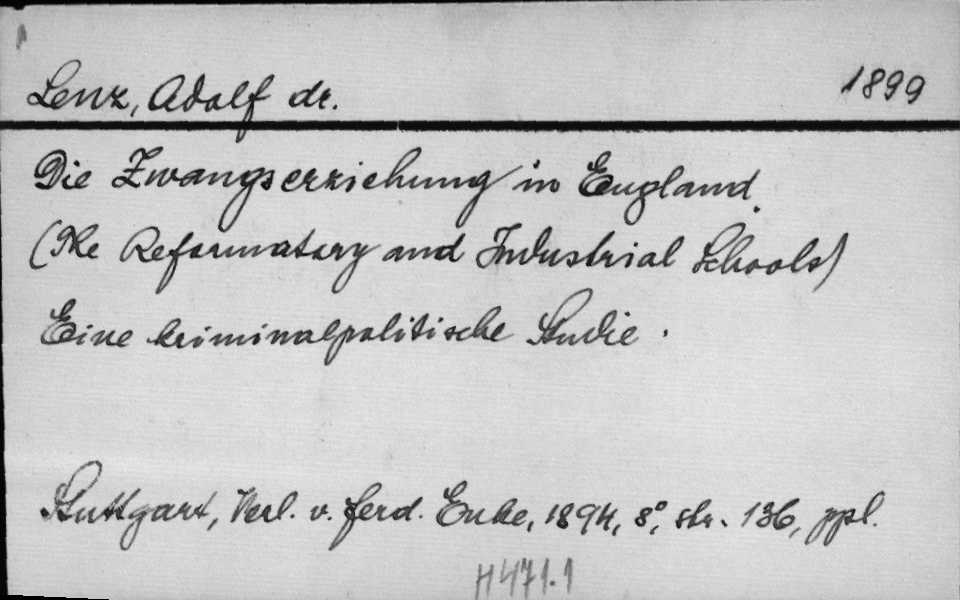 Lenz, Adolf dr. 1899
Die Zwangserziehung in England.
(The Reformatory and Industrial Schools)
Eine kriminalpolitische Studie.
Stuttgart, Verl. v. Ferd. Enke, 1894, 8°, str. 136, ppl.
H 471.1